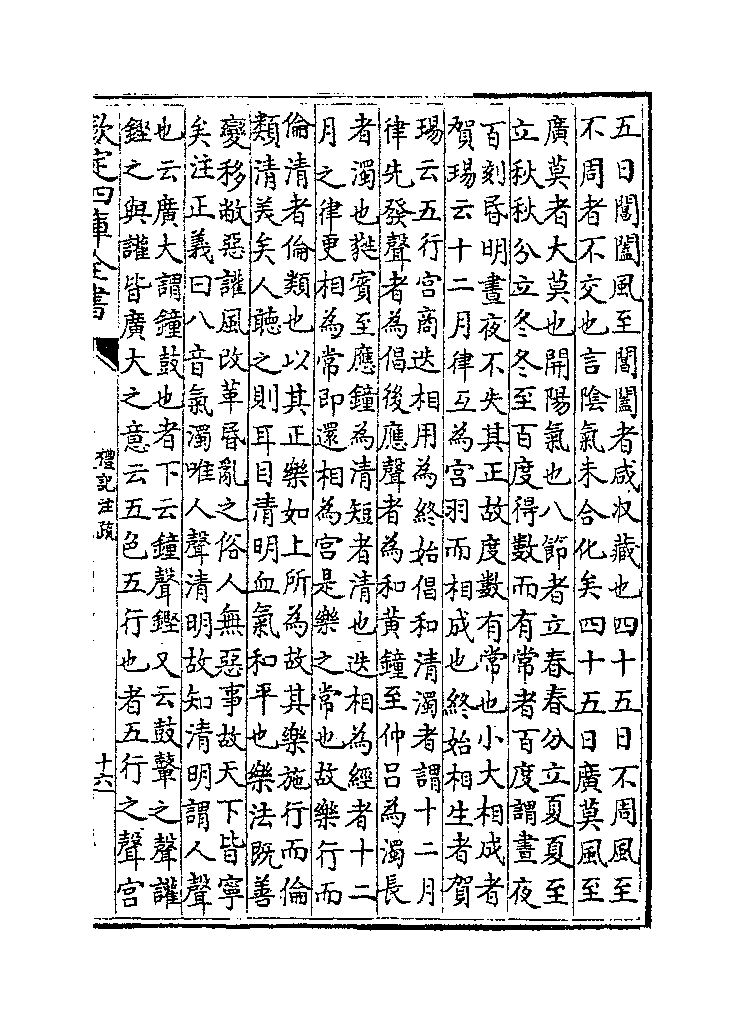 五日閶闔風至閶闔者咸収藏也四十五日不周風至
不周者不交也言陰氣未合化矣四十五日廣莫風至
廣莫者大莫也開陽氣也八節者立春春分立夏夏至
立秋秋分立冬冬至百度得數而有常者百度謂晝夜
百刻昏明晝夜不失其正故度數有常也小大相成者
賀瑒云十二月律互為宮羽而相成也終始相生者賀
瑒云五行宮商迭相用為終始倡和清濁者謂十二月
律先發聲者為倡後應聲者為和黃鐘至仲呂為濁長
者濁也蕤賓至應鐘為清短者清也迭相為經者十二
月之律更相為常即還相為宮是樂之常也故樂行而
倫清者倫類也以其正樂如上所為故其樂施行而倫
類清美矣人聽之則耳目清明血氣和平也樂法既善
變移敝惡讙風改革昏亂之俗人無惡事故天下皆寧
矣注正義曰八音氣濁唯人聲清明故知清明謂人聲
也云廣大謂鐘鼓也者下云鐘聲鏗又云鼓鼙之聲讙
鏗之與讙皆廣大之意云五色五行也者五行之聲宮
欽定四庫全書
禮記註疏
十六